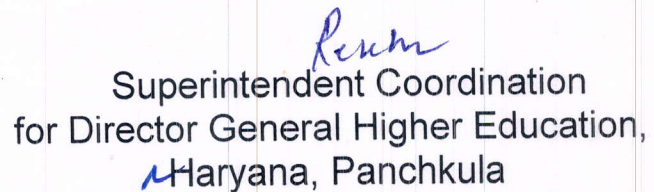 Superintendent Coordination
for Director General Higher Education,
Haryana, Panchkula